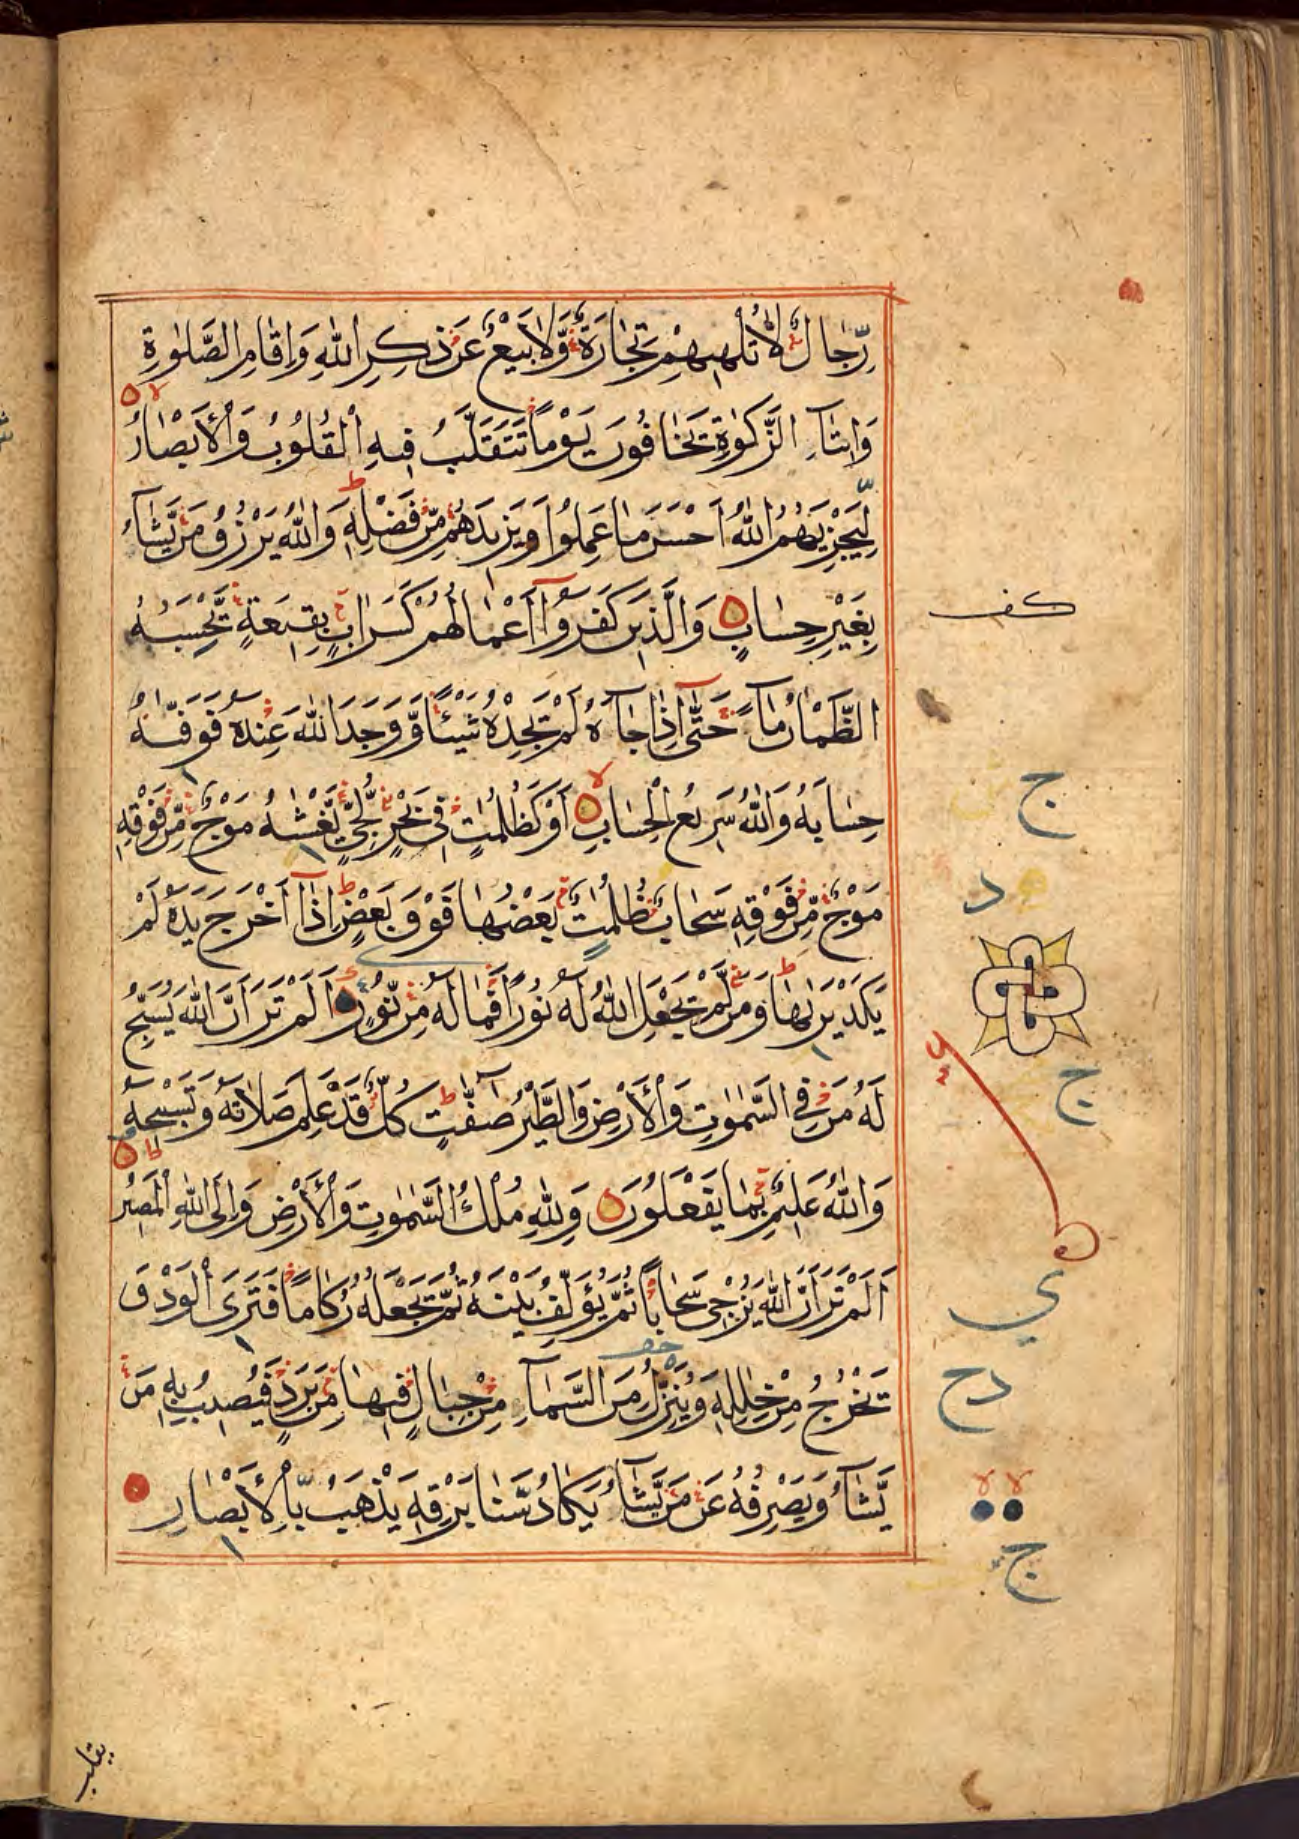 رِّجَالٌ لَّا تُلْهِيهِمْ تِجَارَةٌ وَّلَا بَيْعٌ عَنْ ذِكْرِ اللّٰهِ وَاِقَامِ الصَّلٰوةِ
وَاِيتَآءِ الزَّكٰوةِ يَخَافُونَ يَوْمًا تَتَقَلَّبُ فِيهِ الْقُلُوبُ وَالْأَبْصَارُ
لِيَجْزِيَهُمُ اللّٰهُ اَحْسَنَ مَا عَمِلُوا وَيَزِيدَهُمْ مِّنْ فَضْلِهٖ وَاللّٰهُ يَرْزُقُ مَنْ يَّشَآءُ
بِغَيْرِ حِسَابٍ وَالَّذِينَ كَفَرُوٓا اَعْمَالُهُمْ كَسَرَابٍ بِقِيعَةٍ يَّحْسَبُهُ
الظَّمْاٰنُ مَآءً حَتّٰٓى اِذَا جَآءَهُ لَمْ يَجِدْهُ شَيْـًٔا وَّوَجَدَ اللّٰهَ عِنْدَهُ فَوَفّٰىهُ
حِسَابَهُ وَاللّٰهُ سَرِيعُ الْحِسَابِ اَوْ كَظُلُمٰتٍ فِى بَحْرٍ لُّجِّىٍّ يَّغْشٰىهُ مَوْجٌ مِّنْ فَوْقِهٖ
مَوْجٌ مِّنْ فَوْقِهٖ سَحَابٌ ظُلُمٰتٌ بَعْضُهَا فَوْقَ بَعْضٍ اِذَآ اَخْرَجَ يَدَهُ لَمْ
يَكَدْ يَرٰىهَا وَمَنْ لَّمْ يَجْعَلِ اللّٰهُ لَهُ نُورًا فَمَا لَهُ مِنْ نُّورٍ اَلَمْ تَرَ اَنَّ اللّٰهَ يُسَبِّحُ
لَهُ مَنْ فِى السَّمٰوٰتِ وَالْأَرْضِ وَالطَّيْرُ صٰٓفّٰتٍ كُلٌّ قَدْ عَلِمَ صَلَاتَهُ وَتَسْبِيحَهُ
وَاللّٰهُ عَلِيمٌ بِمَا يَفْعَلُونَ وَلِلّٰهِ مُلْكُ السَّمٰوٰتِ وَالْأَرْضِ وَاِلَى اللّٰهِ الْمَصِيرُ
اَلَمْ تَرَ اَنَّ اللّٰهَ يُزْجِى سَحَابًا ثُمَّ يُؤَلِّفُ بَيْنَهُ ثُمَّ يَجْعَلُهُ رُكَامًا فَتَرَى الْوَدْقَ
يَخْرُجُ مِنْ خِلٰلِهٖ وَيُنَزِّلُ مِنَ السَّمَآءِ مِنْ جِبَالٍ فِيهَا مِنْ بَرَدٍ فَيُصِيبُ بِهٖ مَنْ
يَّشَآءُ وَيَصْرِفُهُ عَنْ مَّنْ يَّشَآءُ يَكَادُ سَنَا بَرْقِهٖ يَذْهَبُ بِالْأَبْصَارِ
كف
ج
د
ج
ى
دح
لا لا
ج
يقلب